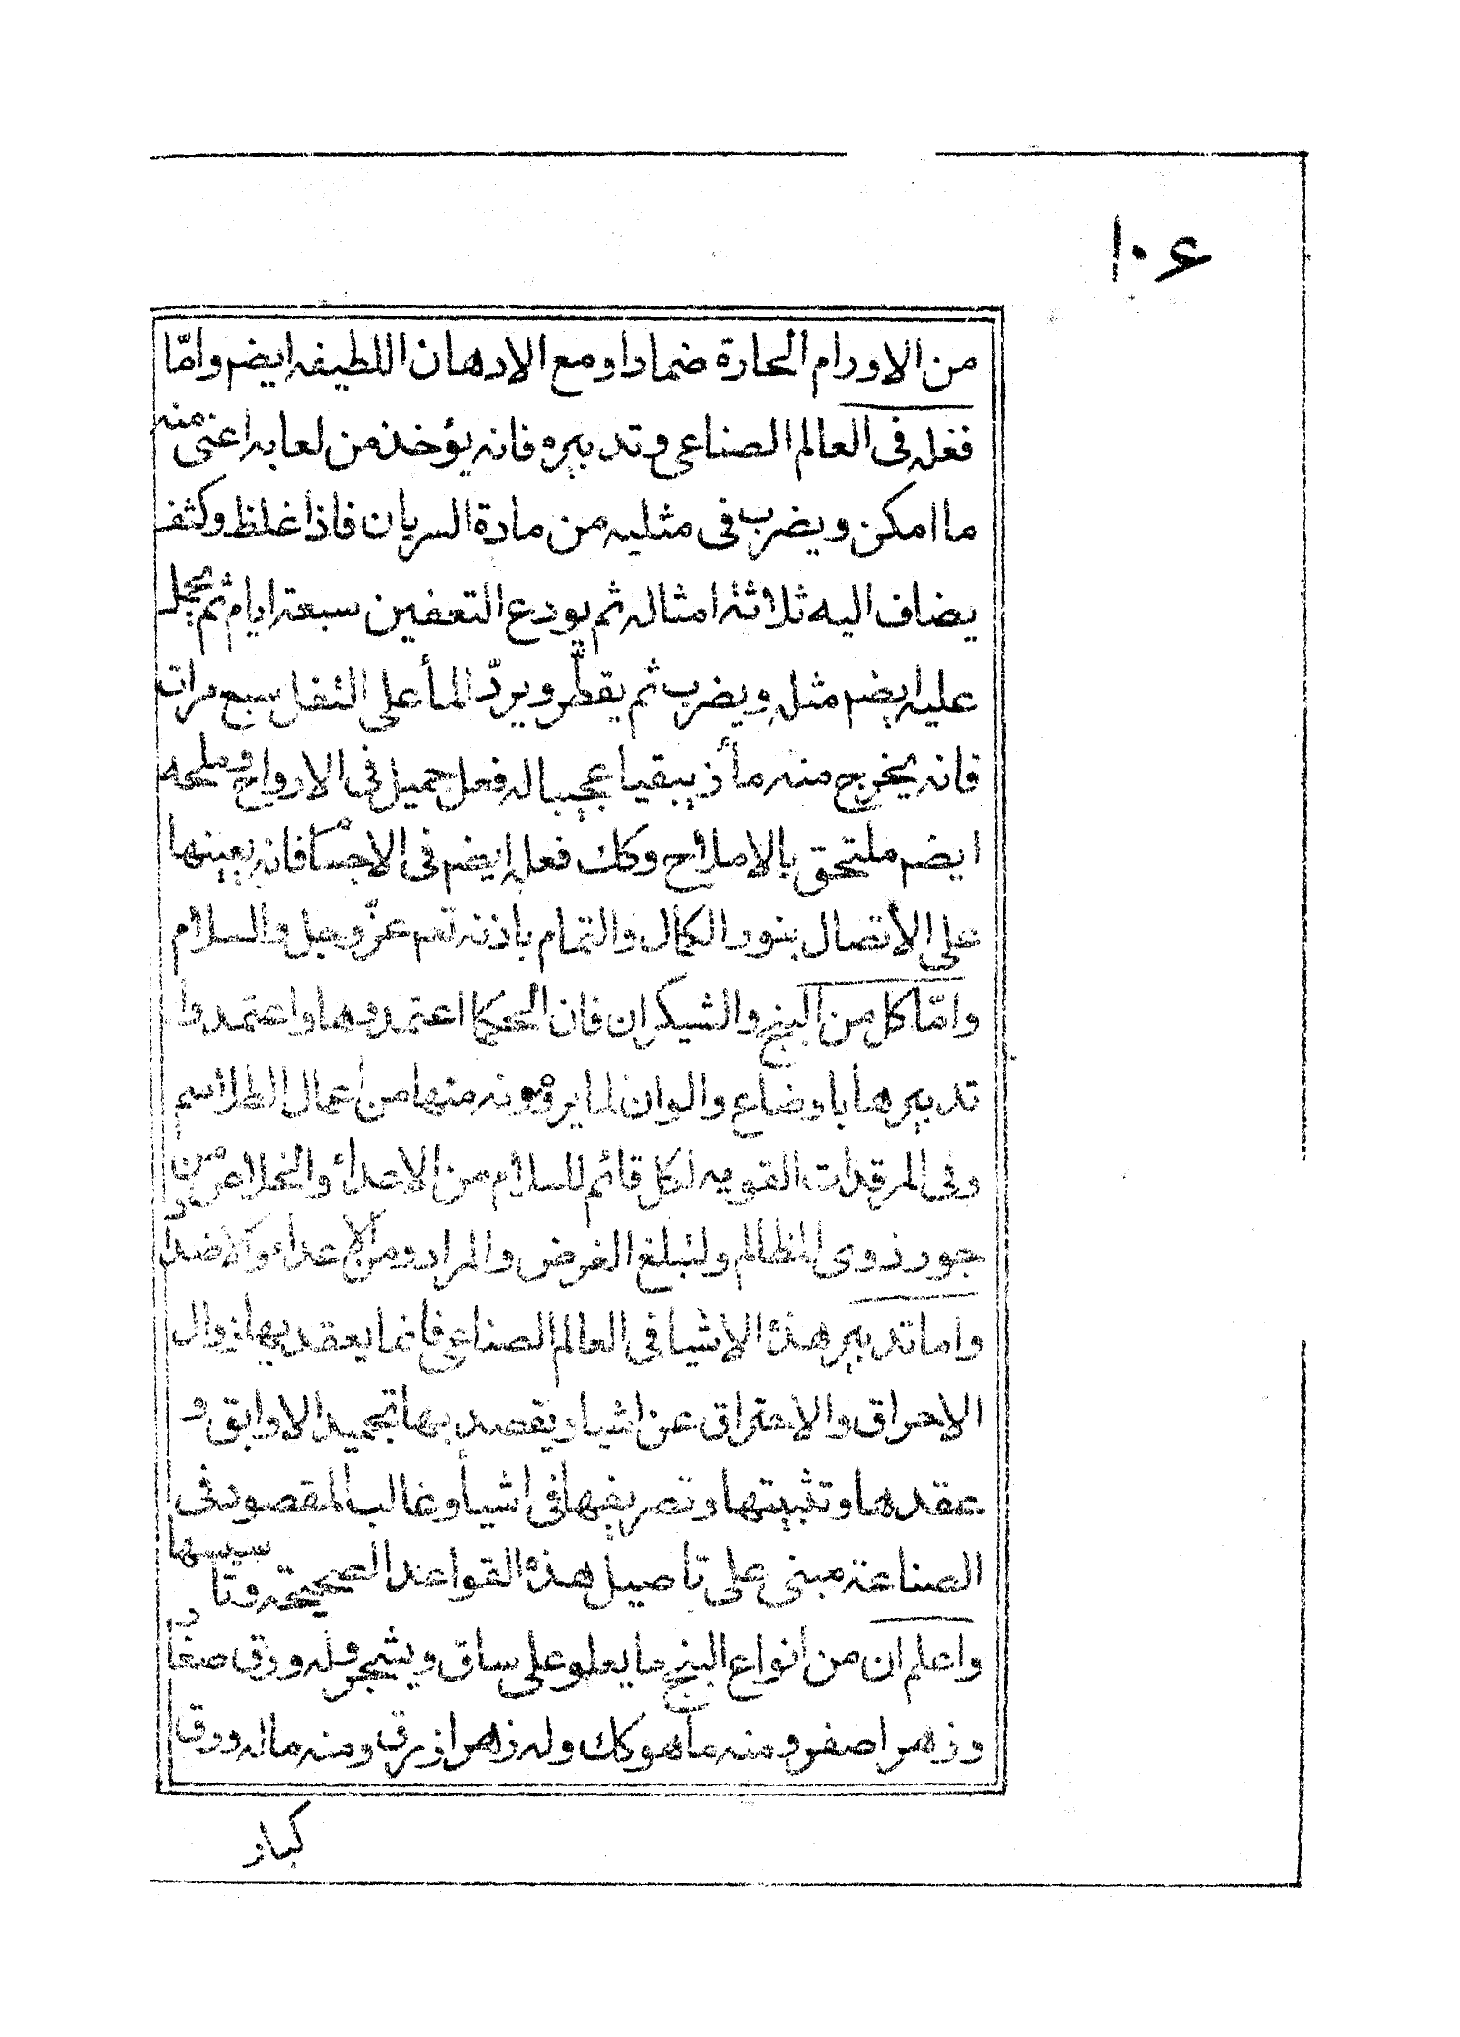 ١٠۶
من الاورام الحارة ضمادا ومع الادهان اللطيفه ايضم وامّا
فعله فى العالم الصناعى وتدبيره فانه يؤخذ من لعابه اعنى منه
ما امكن ويضرب فى مثليه من مادة السريان فاذا غلظ وكثف
يضاف اليه ثلاثة امثاله ثم يودع التعفين سبعة ايام ثم يجعل
عليه ايضم مثله ويضرب ثم يقطّر ويردّ المأ على الثفل سبع مرات
فانه يخرج منه مأ زيبقيا عجيبا له فعل جميل فى الارواح وملحه
ايضم ملتحق بالاملاح وكك فعله ايضم فى الاجسام فانه يعينها
على الأتصال بنور الكمال والتمام باذنه تعم عزّ وجل والسلام
وامّا كل من البنج والشيكران فان الحكما اعتمدوها واعتمدوا
تدبيرها باوضاع والوان لما يرومونه منها من اعمال الطلاسم
وفى المرقدات القويه لكل قائم للسلام من الاعداء والخلاص من
جور ذوى المظالم ولتبلغ الغرض والمراد ومن الاعداء والاضداد
واما تدبير هذه الاشيا فى العالم الصناعى فانما يعقد بها زوال
الاحراق والاحتراق عن اشيا ويقصد بها تجميد الاوابق و
عقدها وتثبيتها وتصريفها فى اشيأ وغالب المقصود فى
الصناعة مبنى على تاصيل هذه القواعد الصحيحة وتاسيسها
واعلم ان من انواع البنج ما يعلو على ساق ويشجر وله ورق صغار
وزهر اصفر ومنه ما هو كك وله زهر ازرق ومنه ماله ورق
كبار